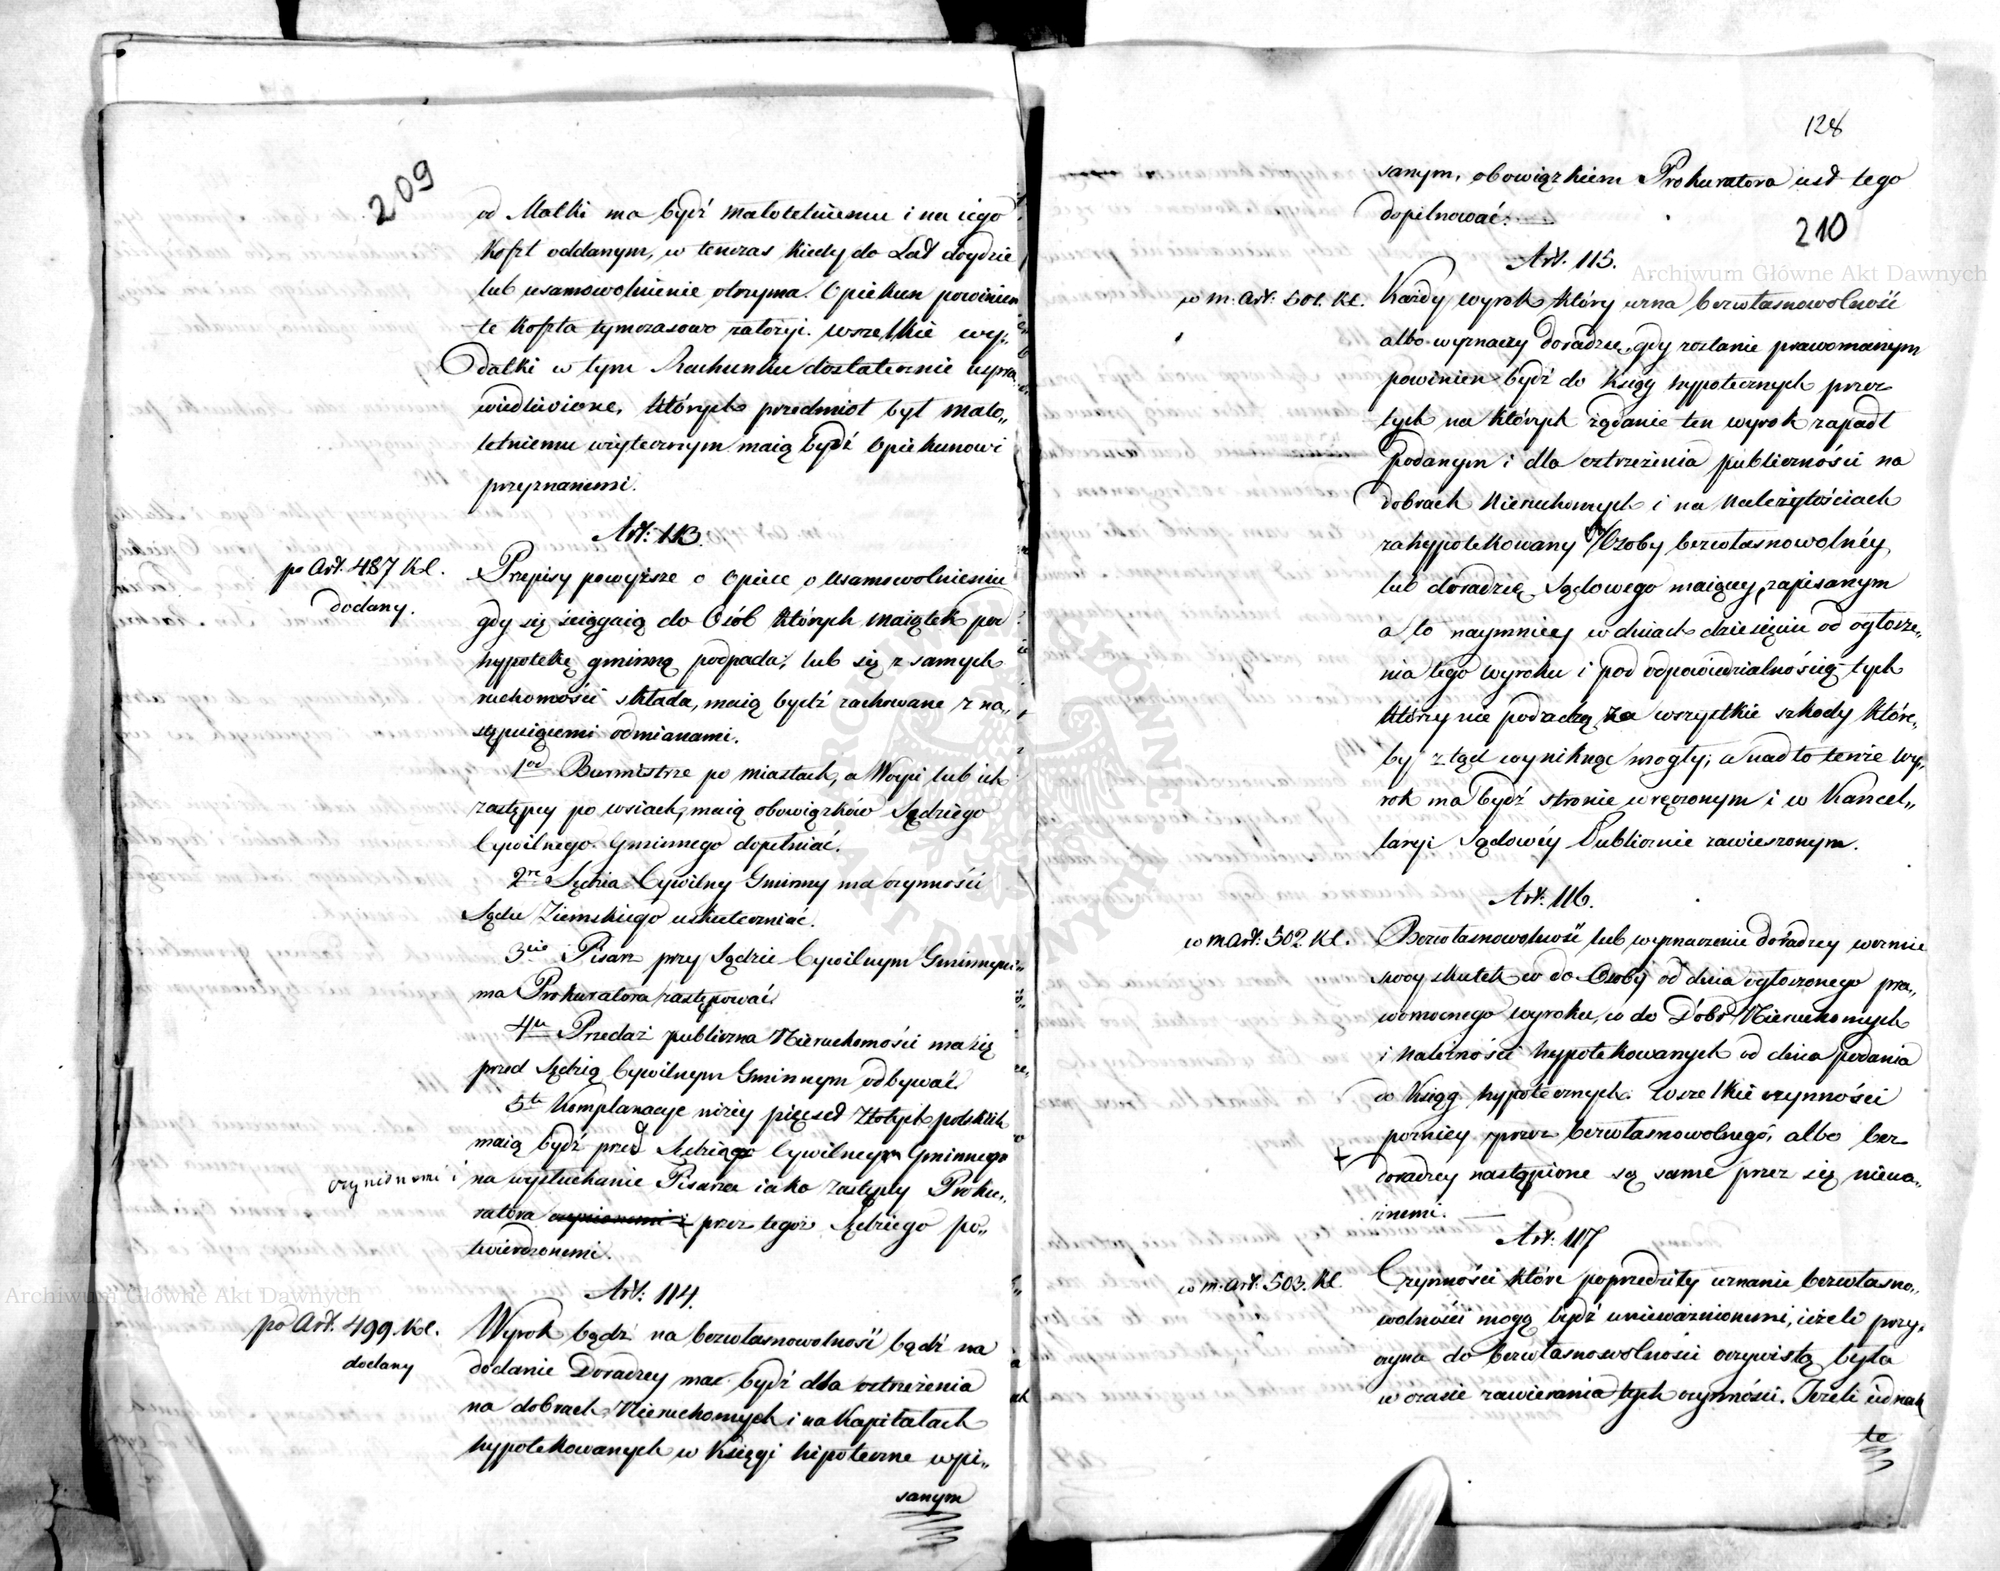 209
od Matki ma bydź małoletniemu i na iego
koszt oddanym, w tenczas kiedy do Lat doydzie
lub usamowolnienie otrzyma. Opiekun powinien
te koszta tymczasowo założyć. Wszelkie wy„
datki w tym Rachunku dostatecznie uspra„
wiedliwione, których przedmiot był mało„
letniemu użytecznym maią bydź Opiekunowi
przyznanemi.
Art: 113.
po Art. 487 Kl.
dodany.
Przepisy powyższe o Opiece o usamowolnieniu
gdy się ściągaią do Osób których maiątek pod
hypotekę gminną podpada, lub się z samych
ruchomości składa, maią bydź zachowane z na„
stępuiącemi odmianami.
1od Burmistrze po miastach, a Woyci lub ich
zastępcy po wsiach, maią obowiązków Sędziego
Cywilnego Gminnego dopełniać.
2re Sędzia Cywilny Gminny ma czynności
Sądu Ziemskiego uskuteczniać.
3cie Pisarz przy Sędzie Cywilnym Gminnym
ma Prokuratora zastępować
4te Przedaż publiczna Nieruchomości ma się
przed Sędzią Cywilnym Gminnym odbywać.
5te Komplanacye niżey pięćset złotych polskich
maią bydź przed Sędziego Cywilnego Gminnego
czynionemi i
na wysłuchanie Pisarza iako zastępcy Proku„
ratora czynionemi i przez tegoż Sędziego po„
twierdzonemi.
Art: 114.
po Art. 499. Kl.
dodany
Wyrok bądź na bezwłasnowolność bądź na
dodanie Doradzcy ma bydź dla ostrzeżenia
na dobrach Nieruchomych i na Kapitałach
hypotekowanych w Księgi hipoteczne wpi„
sanym
128
sanym, obowiązkiem Prokuratora iest tego
dopilnować.
210
Art. 115.
w m. Art. 501. Kl.
Każdy wyrok który uzna bezwłasnowolność
albo wyznaczy doradzcę, gdy zostanie prawomocnym
powinien bydź do Ksiąg hypotecznych przez
tych na których żądanie ten wyrok zapadł
podanym i dla ostrzeżenia publiczności na
dobrach Nieruchomych i na Należytościach
zahypotekowany Osoby bezwłasnowolnéy
lub doradzcę Sądowego maiącey, zapisanym
a to naymniey w dniach dziesięciu od ogłosze„
nia tego wyroku i pod odpowiedzialnością tych
którzy nie podadzą za wszystkie szkody które„
by ztąd wyniknąć mogły; a nad to tenże wy„
rok ma bydź stronie wręczonym i w Kancel„
laryi Sądowéy Publicznie zawieszonym.
Art. 116.
w m Art. 502. Kl.
Bezwłasnowolność lub wyznaczenie doradzcy weźmie
swoy skutek co do Osoby od dnia ogłoszonego pra„
womocnego wyroku, co do Dóbr Nieruchomych
i należności hypotekowanych od dnia podania
do Ksiąg hypotecznych. Wszelkie czynności
pozniey przez bezwłasnowolnego, albo bez
doradzcy nastąpione są same przez się niewa„
żnemi.
Art. 117
w m. Art. 503. Kl.
Czynności które poprzedziły uznanie bezwłasno„
wolności mogą bydź unieważnionemi, ieżeli przy„
czyna do bezwłasnowolności oczywistą była
w czasie zawierania tych czynności. Jeżeli iednak
te
Archiwum Główne Akt Dawnych
Archiwum Główne Akt Dawnych